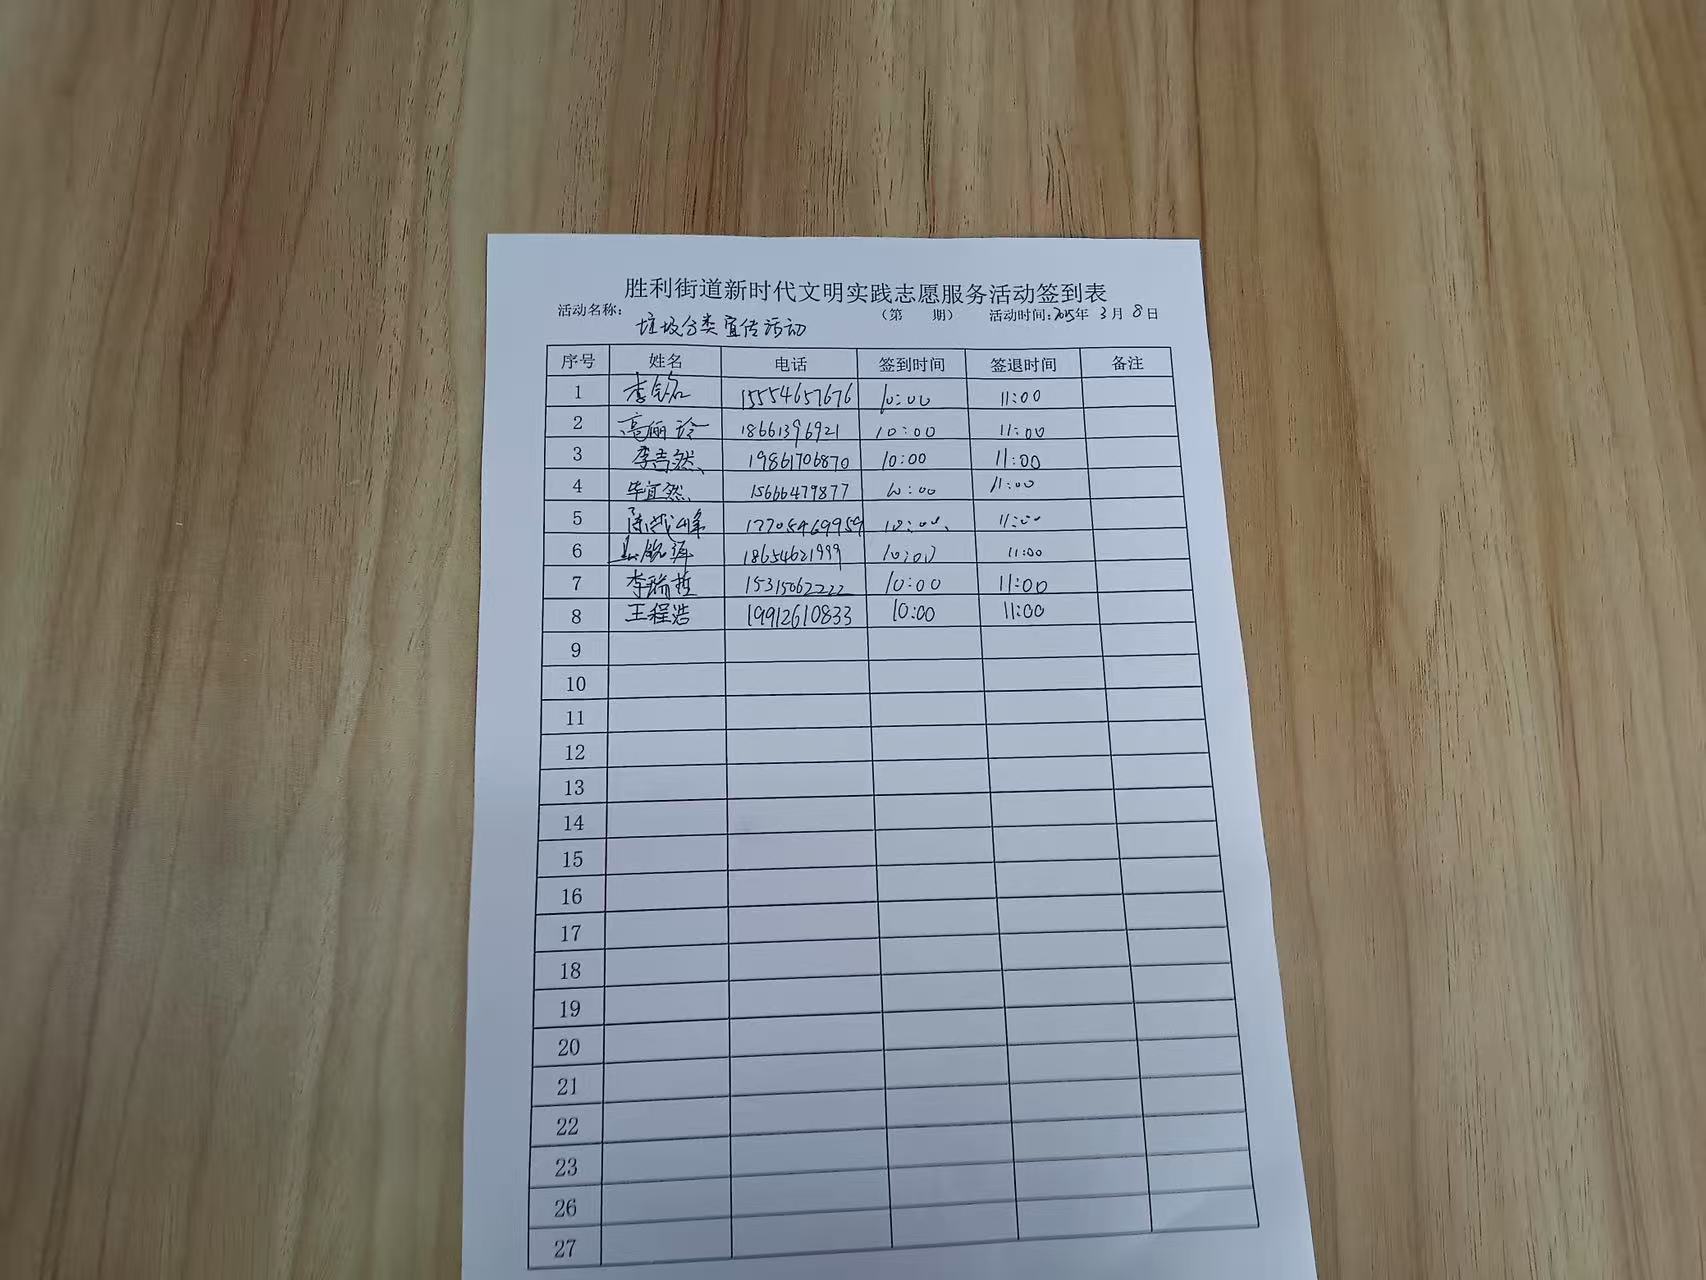 胜利街道新时代文明实践志愿服务活动签到表
活动名称: 垃圾分类宣传活动 （第 期） 活动时间:2025年 3月 8日
序号 姓名 电话 签到时间 签退时间 备注
1 李铭 15554657676 10:00 11:00
2 高丽玲 18661396921 10:00 11:00
3 李吉然 19861706870 10:00 11:00
4 毕宜然 15666479877 10:00 11:00
5 17705469959 10:00 11:00
6 18654621999 10:00 11:00
7 李瑞哲 15315062222 10:00 11:00
8 王程浩 19912610833 10:00 11:00
9
10
11
12
13
14
15
16
17
18
19
20
21
22
23
26
27